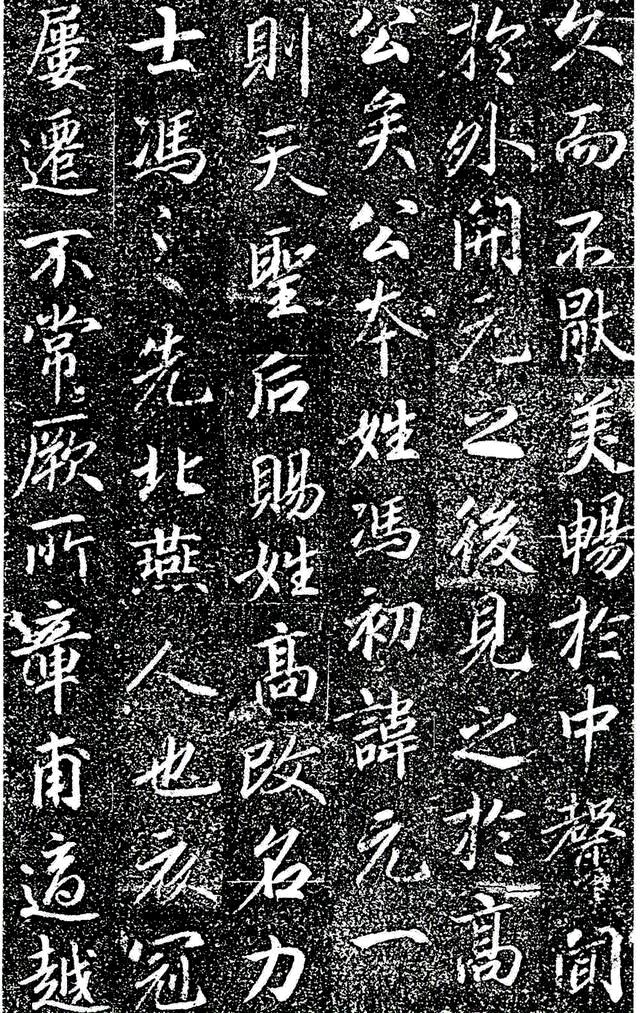 久而不猒美暢於中聲聞
於外開元之後見之於髙
公矣公本姓馮初諱元一
則天聖后賜姓髙改名力
士馮之先北燕人也衣冠
屢遷不常厥所章甫適越